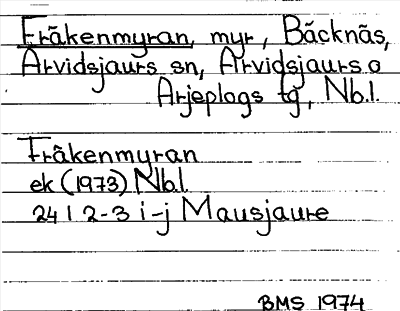 Fräkenmyran, myr, Bäcknäs,
Arvidsjaurs sn, Arvidsjaurs o
Arjeplogs tg, Nb.l.
Fräkenmyran
ek (1973) Nbl
24 I 2-3 i-j Mausjaure
BMS 1974